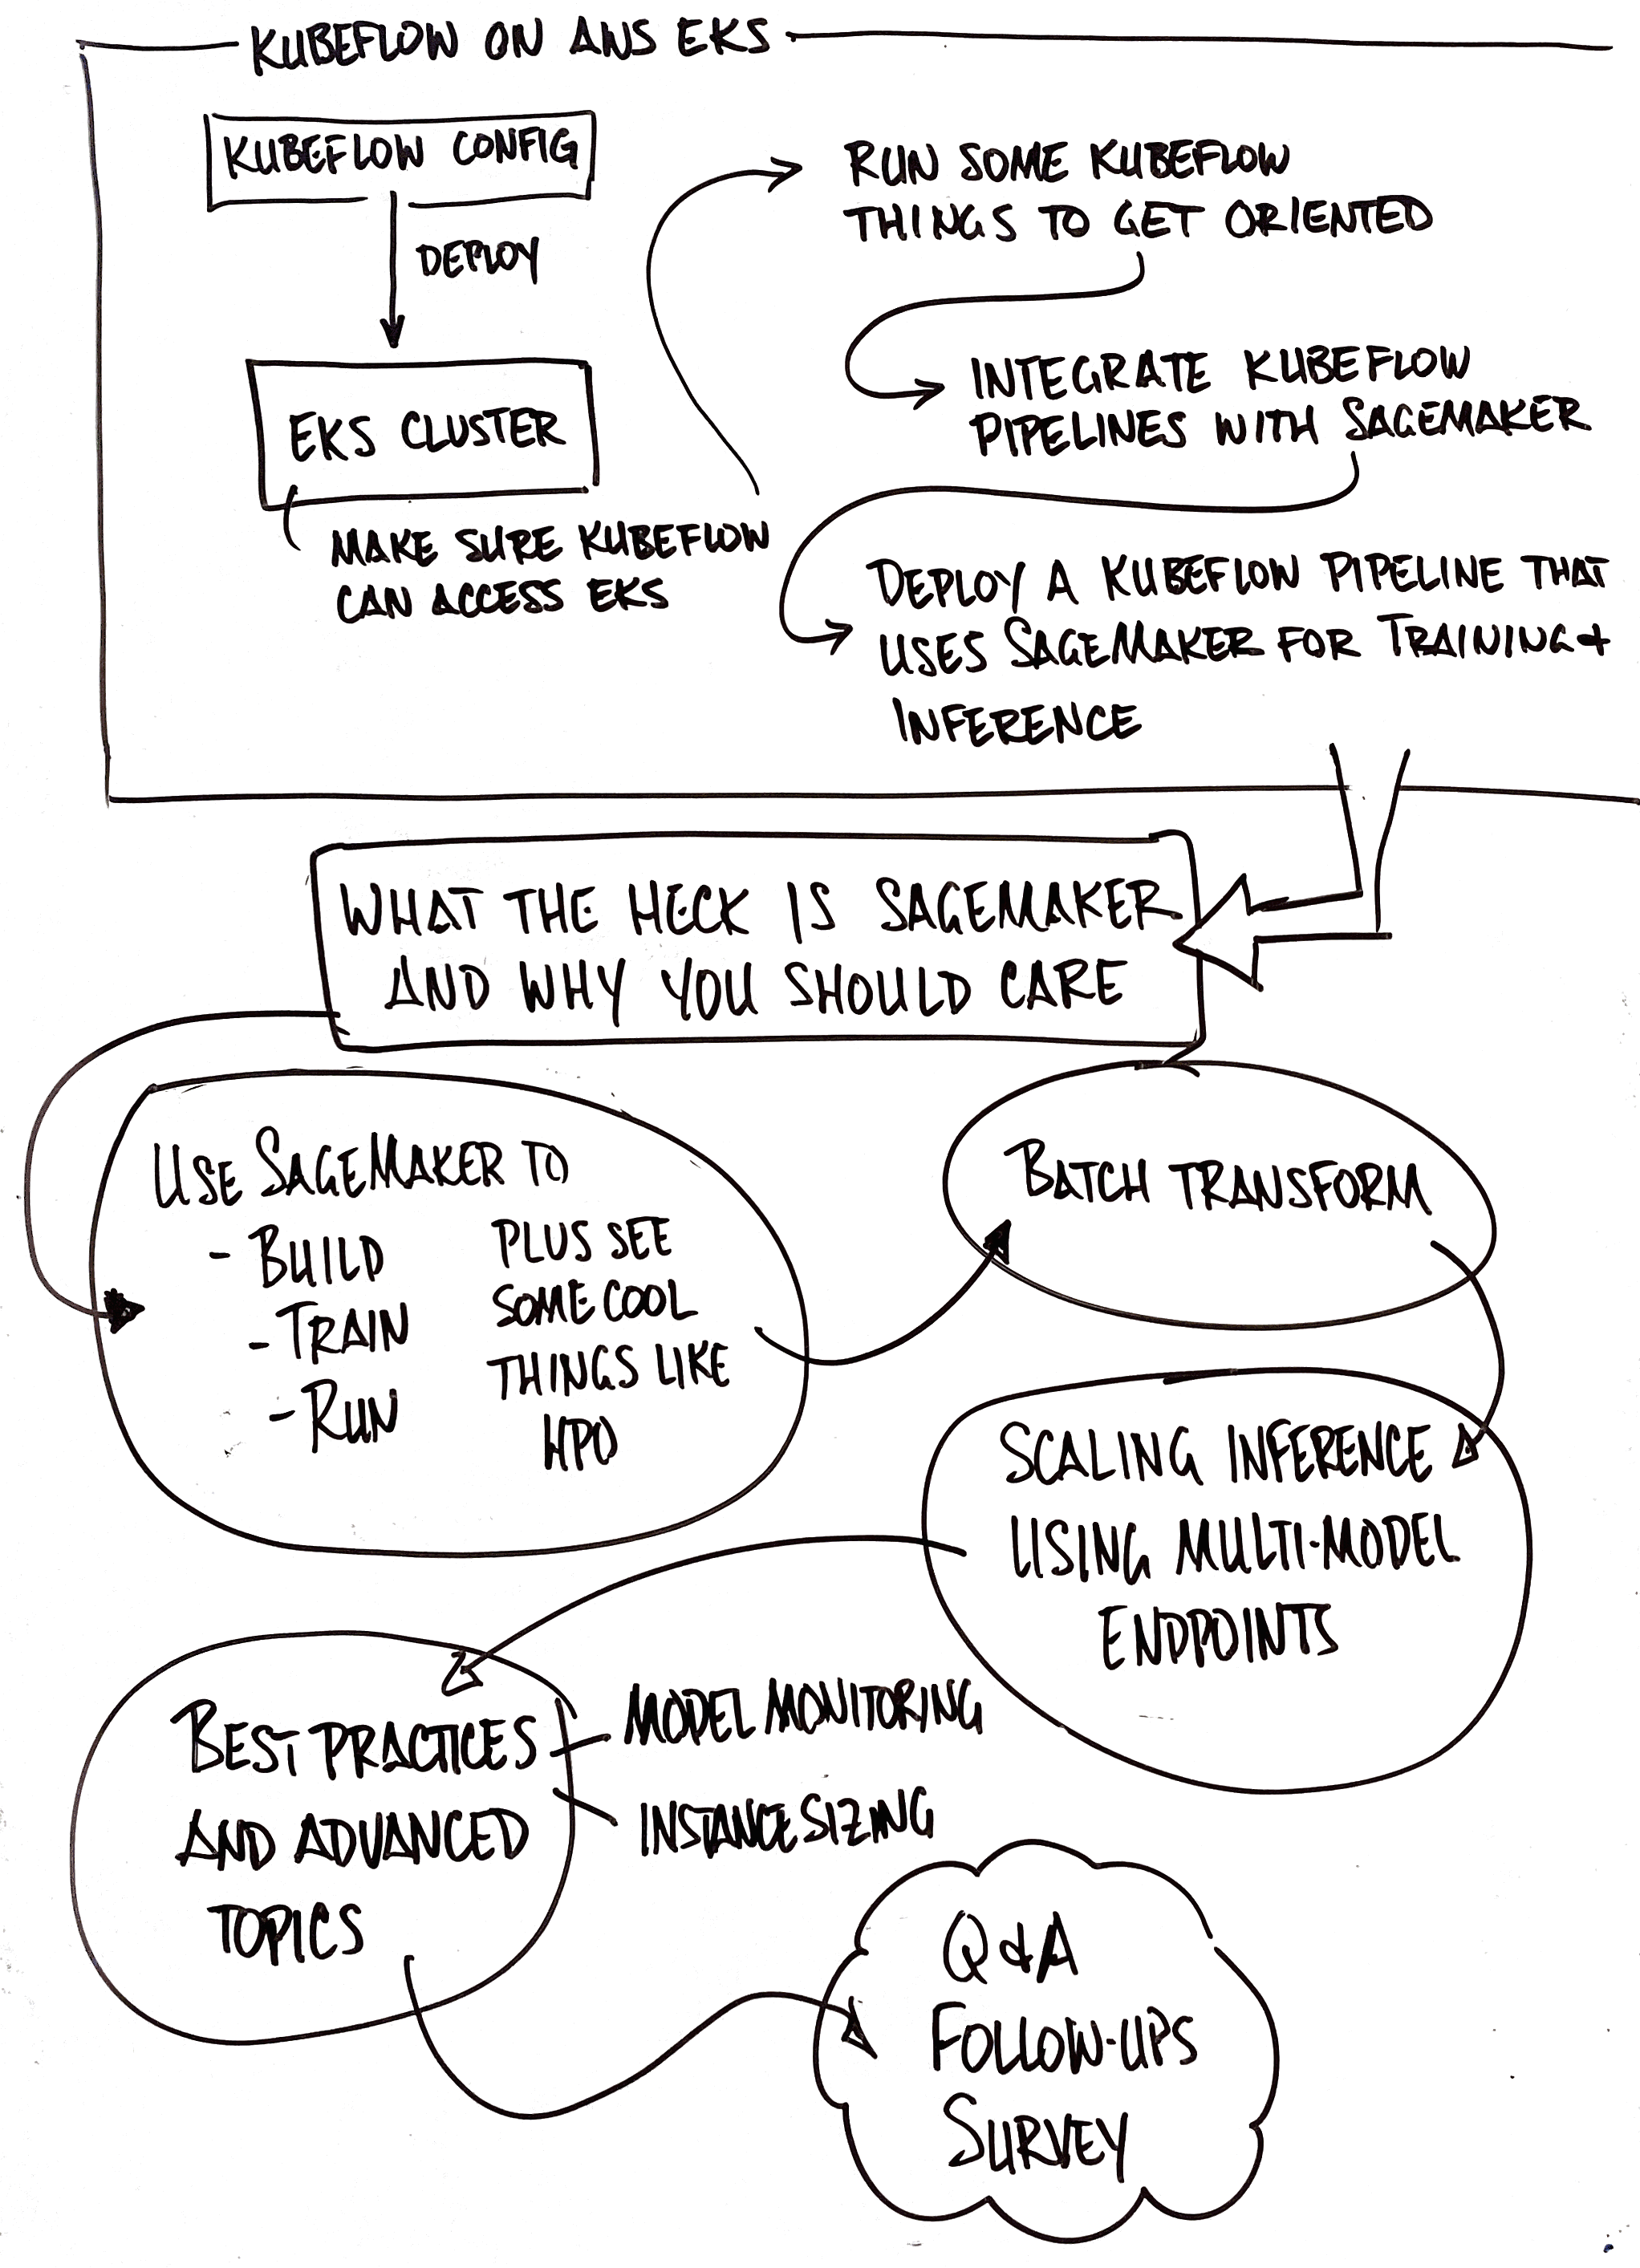 KUBEFLOW ON AWS EKS
KUBEFLOW CONFIG
DEPLOY
EKS CLUSTER
MAKE SURE KUBEFLOW
CAN ACCESS EKS
RUN SOME KUBEFLOW
THINGS TO GET ORIENTED
INTEGRATE KUBEFLOW
PIPELINES WITH SAGEMAKER
DEPLOY A KUBEFLOW PIPELINE THAT
USES SAGEMAKER FOR TRAINING +
INFERENCE
WHAT THE HECK IS SAGEMAKER
AND WHY YOU SHOULD CARE
USE SAGEMAKER TO
- BUILD
- TRAIN
- RUN
PLUS SEE
SOME COOL
THINGS LIKE
HPO
BATCH TRANSFORM
SCALING INFERENCE
USING MULTI-MODEL
ENDPOINTS
BEST PRACTICES
AND ADVANCED
TOPICS
MODEL MONITORING
INSTANCE SIZING
Q & A
FOLLOW-UPS
SURVEY